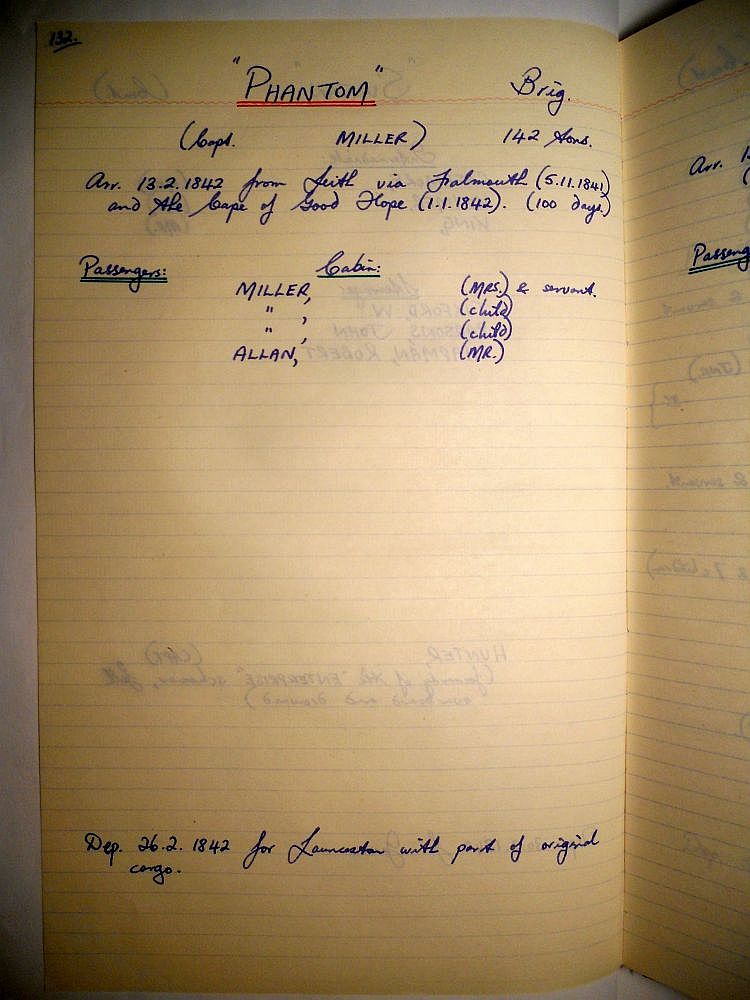 132.
"PHANTOM" Brig.
(Capt. MILLER) 142 tons.
Arr. 13.2.1842 from Leith via Falmouth (5.11.1841)
and the Cape of Good Hope (1.1.1842). (100 days.)
Passengers: Cabin:
MILLER, (MRS.) & servant.
" , (child)
" , (child)
ALLAN, (MR.)
Dep. 26.2.1842 for Launceston with part of original
cargo.
Arr.
Passeng